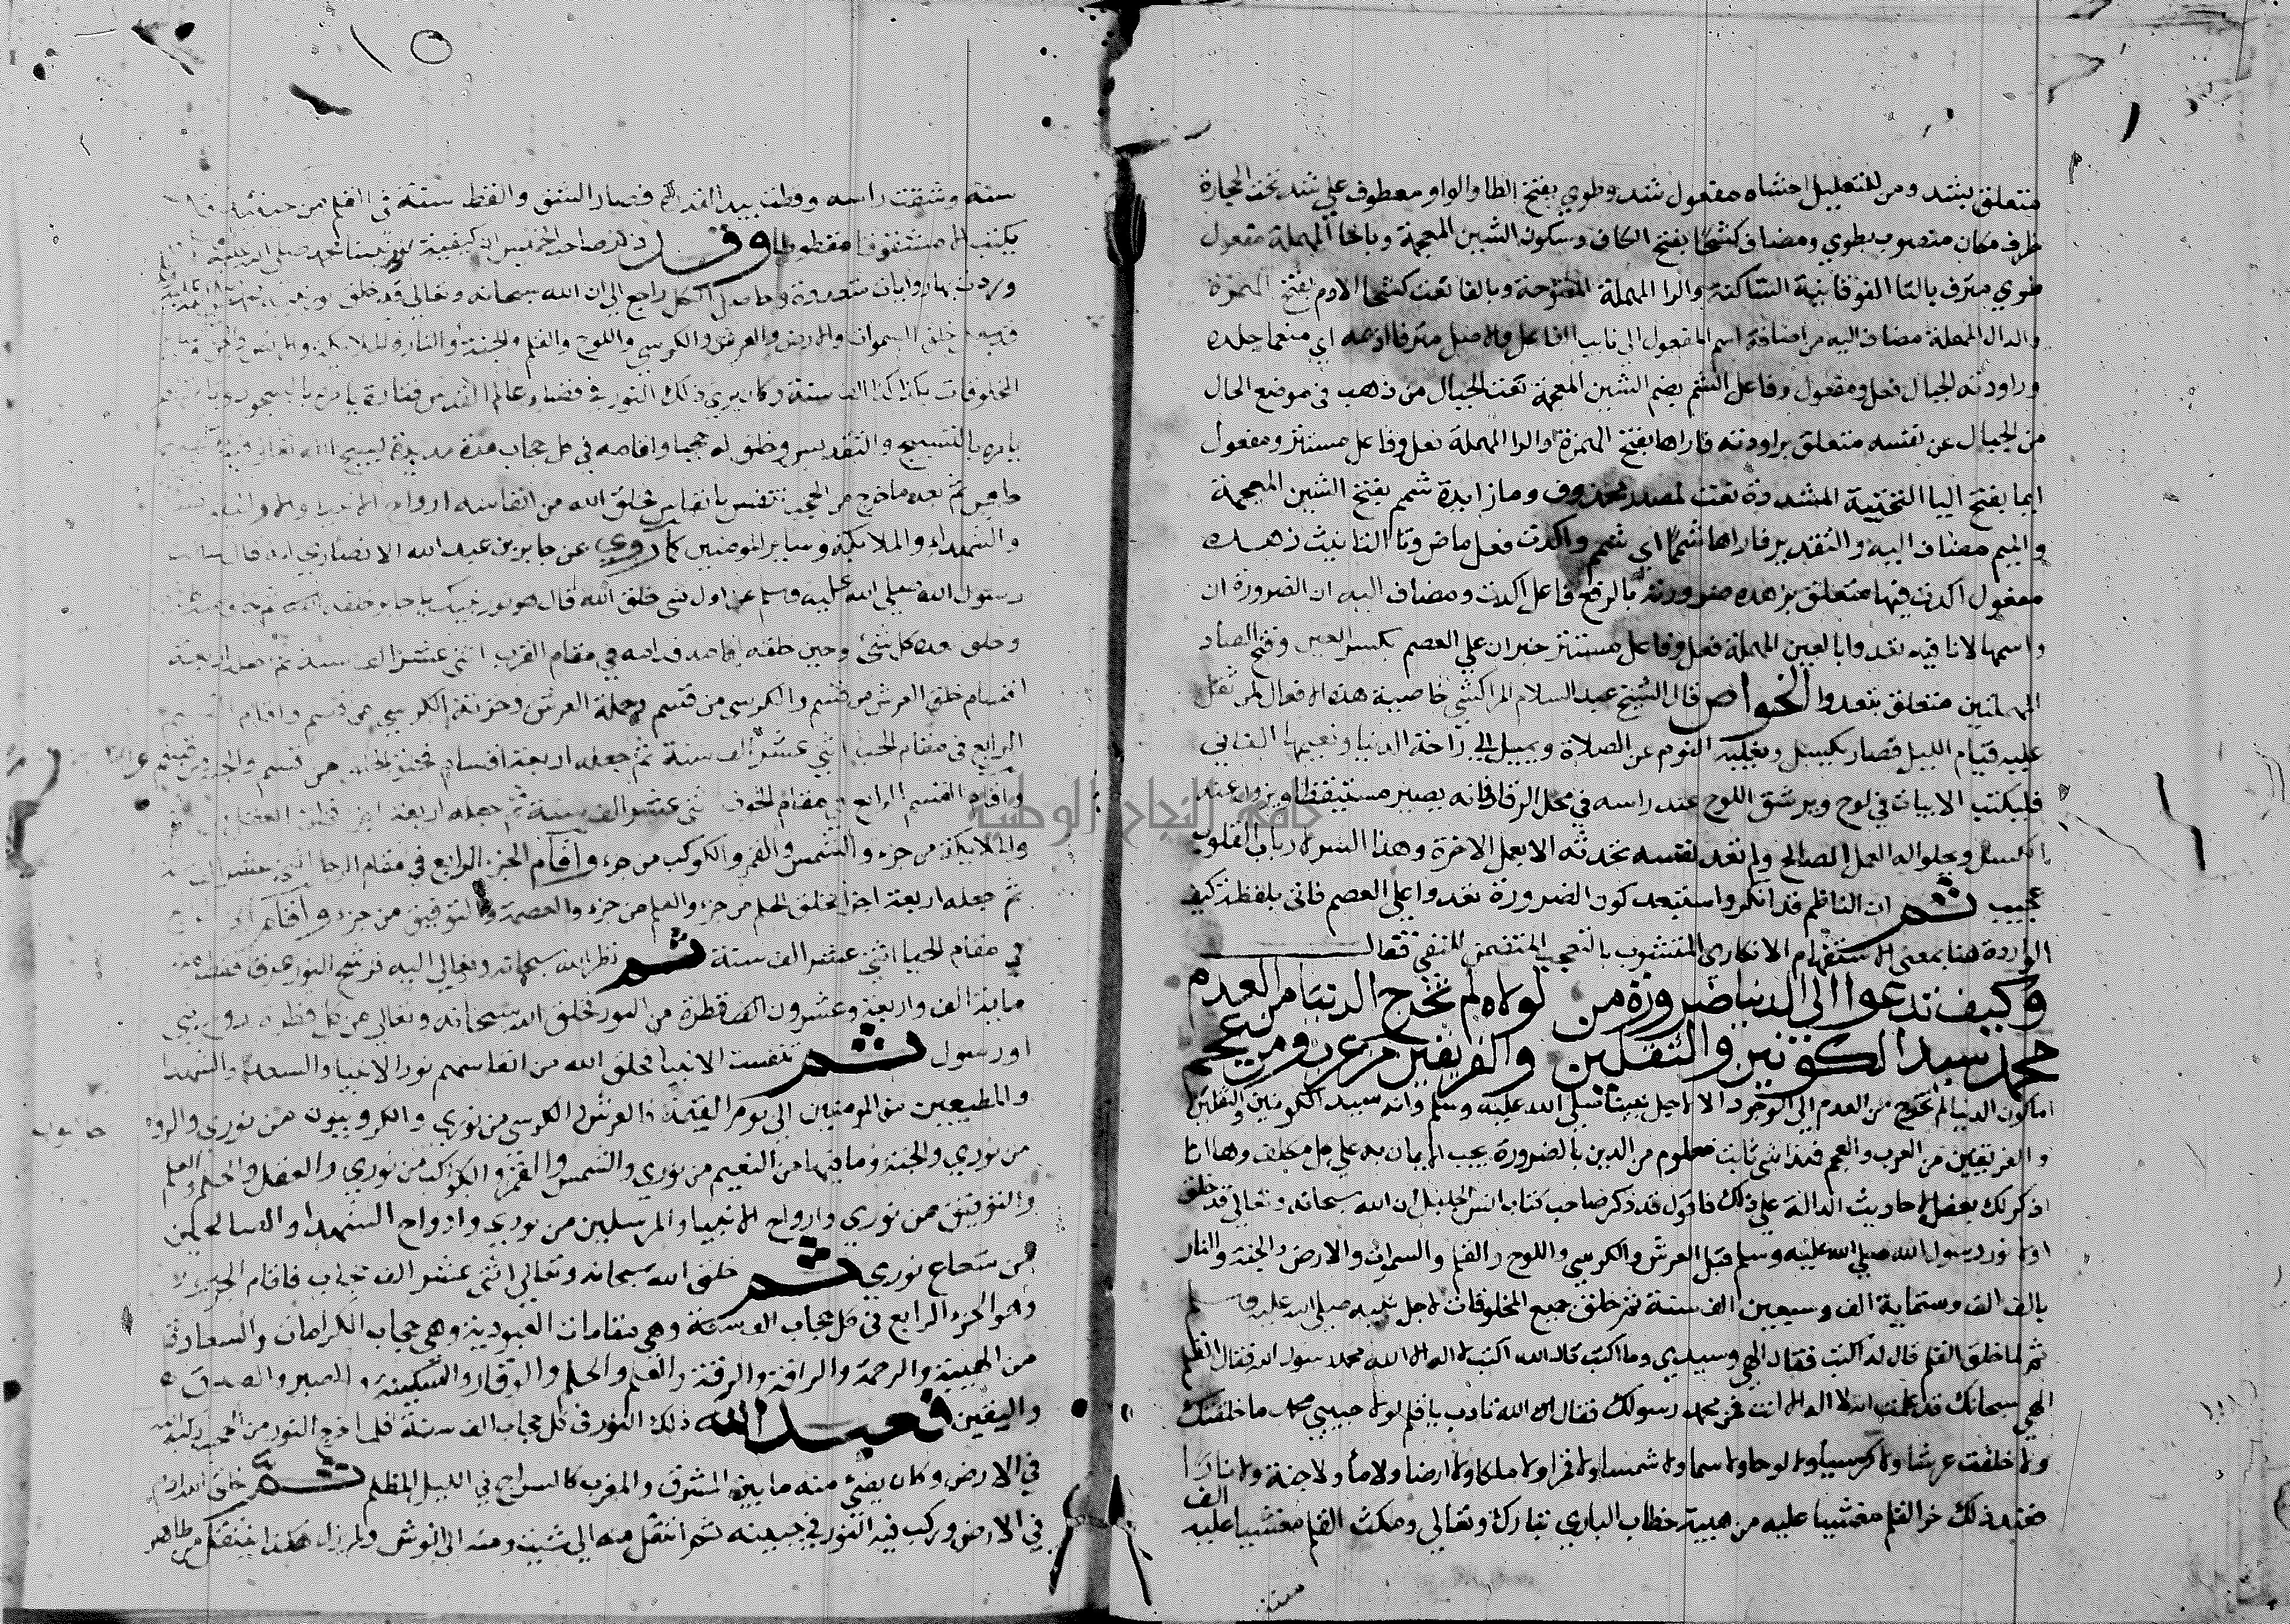 متعلق بشد ومن للتعليل احشاه مفعول شد وطوي بفتح الطا والواو معطوف علي شد تحت الحجارة
ظرف مكان منصوب بطوي ومضاف كشحا بفتح الكاف وسكون الشين المعجمة وبالحا المهملة مفعول
طوي مترف بالتا الفوقانية الساكنة والرا المهملة المفتوحة وبالفا نعت كشحا الادم بفتح الهمزة
والدال المهملة مضاف اليه من اضافة اسم المفعول الي نايب الفاعل والاصل مترفا ادمه اي منعما جلده
وراودته الجبال فعل ومفعول وفاعل الشم بضم الشين المعجمة نعت الجبال من ذهب في موضع الحال
من الجبال عن نفسه متعلق براودته فاراها بفتح الهمزة والرا المهملة فعل وفاعل مستتر ومفعول
ايما بفتح اليا التحتية المشددة نعت لمصدر محذوف وما زايدة شمم بفتح الشين المعجمة
والميم مضاف اليه والتقدير فاراها شمما اي شمم واكدت فعل ماض وتا التانيث زهده
مفعول اكدت فيها متعلق بزهده ضرورته بالرفع فاعل اكدت ومضاف اليه ان الضرورة ان
واسمها لا نافيه تعدوا بالعين المهملة فعل وفاعل مستتر خبر ان علي العصم بكسر العين وفتح الصاد
المهملتين متعلق بتعدوا الخواص قال الشيخ عبد السلام المراكشي خاصية هذه الافعال لمن ثقل
عليه قيام الليل فصار يكسل ويغلبه النوم عن الصلاة ويميل الي راحة الدنيا ونعيمها الفاني
فليكتب الابيات في لوح ويرشق اللوح عند راسه في محل الرقاد فانه يصير مستيقظا ويزول عنه
الكسل ويحلوا له العمل الصالح ولم تعد نفسه تحدثه الا بعمل الاخرة وهذا السر لارباب القلوب
عجيب ثم ان الناظم قد انكر واستبعد كون الضرورة تعدوا علي العصم فاتي بلفظة كيف
الواردة هنا بمعني الاستفهام الانكاري المشوب بالتعجب المتضمن للنفي فقال
وكيف تدعوا الي الدنيا ضرورة من لولاه لم تخرج الدنيا من العدم
محمد سيد الكونين والثقلين والفريقين من عرب ومن عجم
اما كون الدنيا لم تخرج من العدم الي الوجود الا لاجل نبينا صلي الله عليه وسلم وانه سيد الكونين والثقلين
والفريقين من العرب والعجم فهذا شي ثابت معلوم من الدين بالضرورة يجب الايمان به علي كل مكلف وها انا
اذكر لك بعض الاحاديث الدالة علي ذلك فاقول قد ذكر صاحب كتاب انس الجليل ان الله سبحانه وتعالي قد خلق
اولا نور رسول الله صلي الله عليه وسلم قبل العرش والكرسي واللوح والقلم والسموات والارض والجنة والنار
بالف الف وستماية الف وسبعين الف سنة ثم خلق جميع المخلوقات لاجل نبيه صلي الله عليه وسلم
ثم لما خلق القلم قال له اكتب فقال الهي وسيدي وما اكتب قال الله اكتب لا اله الا الله محمد رسول الله فقال القلم
الهي سبحانك قد علمت انه لا اله الا انت فمن محمد رسولك فقال الله تادب يا قلم لولا حبيبي محمد ما خلقتك
ولا خلقت عرشا ولا كرسيا ولا لوحا ولا سما ولا شمسا ولا قمرا ولا ملكا ولا ارضا ولا ما ولا جنة ولا نارا
فعند ذلك خر القلم مغشيا عليه من هيبة خطاب الباري تبارك وتعالي ومكث القلم مغشيا عليه الف
سنة
١٥
سنة وشقت راسه وقطت بيد القدرة فصار الشق والقط سنة في القلم من حينئذ
يكتب الا مشقوقا مقطوطا وقد ذكر صاحب الخميس ان كيفية نور نبينا محمد صلي الله عليه
وردت بها روايات متعددة وحاصل الكل راجع الي ان الله سبحانه وتعالي قد خلق نور
خلق السموات والارض والعرش والكرسي واللوح والقلم والجنة والنار والملايكة والانس والجن
المخلوقات بكذا كذا الف سنة وكان يري ذلك النور في فضاء عالم القدس فتارة يامره بالسجود
يامره بالتسبيح والتقديس وخلق له حجبا واقامه في كل حجاب مدة مديدة يسبح الله تعالي فيه
خاص ثم بعد ما خرج من الحجب تنفس بانفاس فخلق الله من انفاسه ارواح الانبيا والاوليا
والشهداء والملايكة وساير المومنين كما روي عن جابر بن عبد الله الانصاري انه قال سالت
رسول الله صلي الله عليه وسلم عن اول شي خلق الله قال هو نور نبيك يا جابر خلقه الله ثم
وخلق بعده كل شي وحين خلقه اقامه قدامه في مقام القرب اثني عشر الف سنة ثم جعله اربعة
اقسام خلق العرش من قسم والكرسي من قسم وحملة العرش وخزنة الكرسي من قسم واقام القسم
الرابع في مقام الحب اثني عشر الف سنة ثم جعله اربعة اقسام فخلق القلم من قسم والجنة من قسم
واقام القسم الرابع في مقام الخوف اثني عشر الف سنة ثم جعله اربعة
والملايكة من جزء والشمس والقمر والكوكب من جزء واقام الجزء الرابع في مقام الرجا اثني عشر الف سنة
ثم جعله اربعة اجزا فخلق الحلم من جزء والعلم من جزء والعصمة والتوفيق من جزء واقام
في مقام الحيا اثني عشر الف سنة ثم نظر الله سبحانه وتعالي اليه فرشح النور عرقا
ماية الف واربعة وعشرون الف قطرة من النور فخلق الله سبحانه وتعالي من كل قطرة روح نبي
او رسول ثم تنفست الانبيا فخلق الله من انفاسهم نور الاوليا والسعدا والشهدا
والمطيعين من المومنين الي يوم القيمة فالعرش والكرسي من نوري والكروبيون من نوري والروحانيون
من نوري والجنة وما فيها من النعيم من نوري والشمس والقمر والكوكب من نوري والعقل والحلم والعلم
والتوفيق من نوري وارواح الانبيا والمرسلين من نوري وارواح الشهدا والصالحين
من شعاع نوري ثم خلق الله سبحانه وتعالي اثني عشر الف حجاب فاقام الجزء
وهو الجزء الرابع في كل حجاب الف سنة وهي مقامات العبودية وهي حجاب الكرامات والسعادة
من الهيبة والرحمة والرافة والرقة والعلم والحلم والوقار والسكينة والصبر والصدق
واليقين فعبد الله ذلك النور في كل حجاب الف سنة فلما اخرج النور من الحجب ركبه
في الارض وكان يضئ منه ما بين المشرق والمغرب كالسراج في الليل المظلم ثم خلق الله ادم
في الارض وركب فيه النور في جبينه ثم انتقل منه الي شيث ومنه الي انوش ولم يزل هكذا ينتقل من طاهر
جامعة النجاح الوطنية